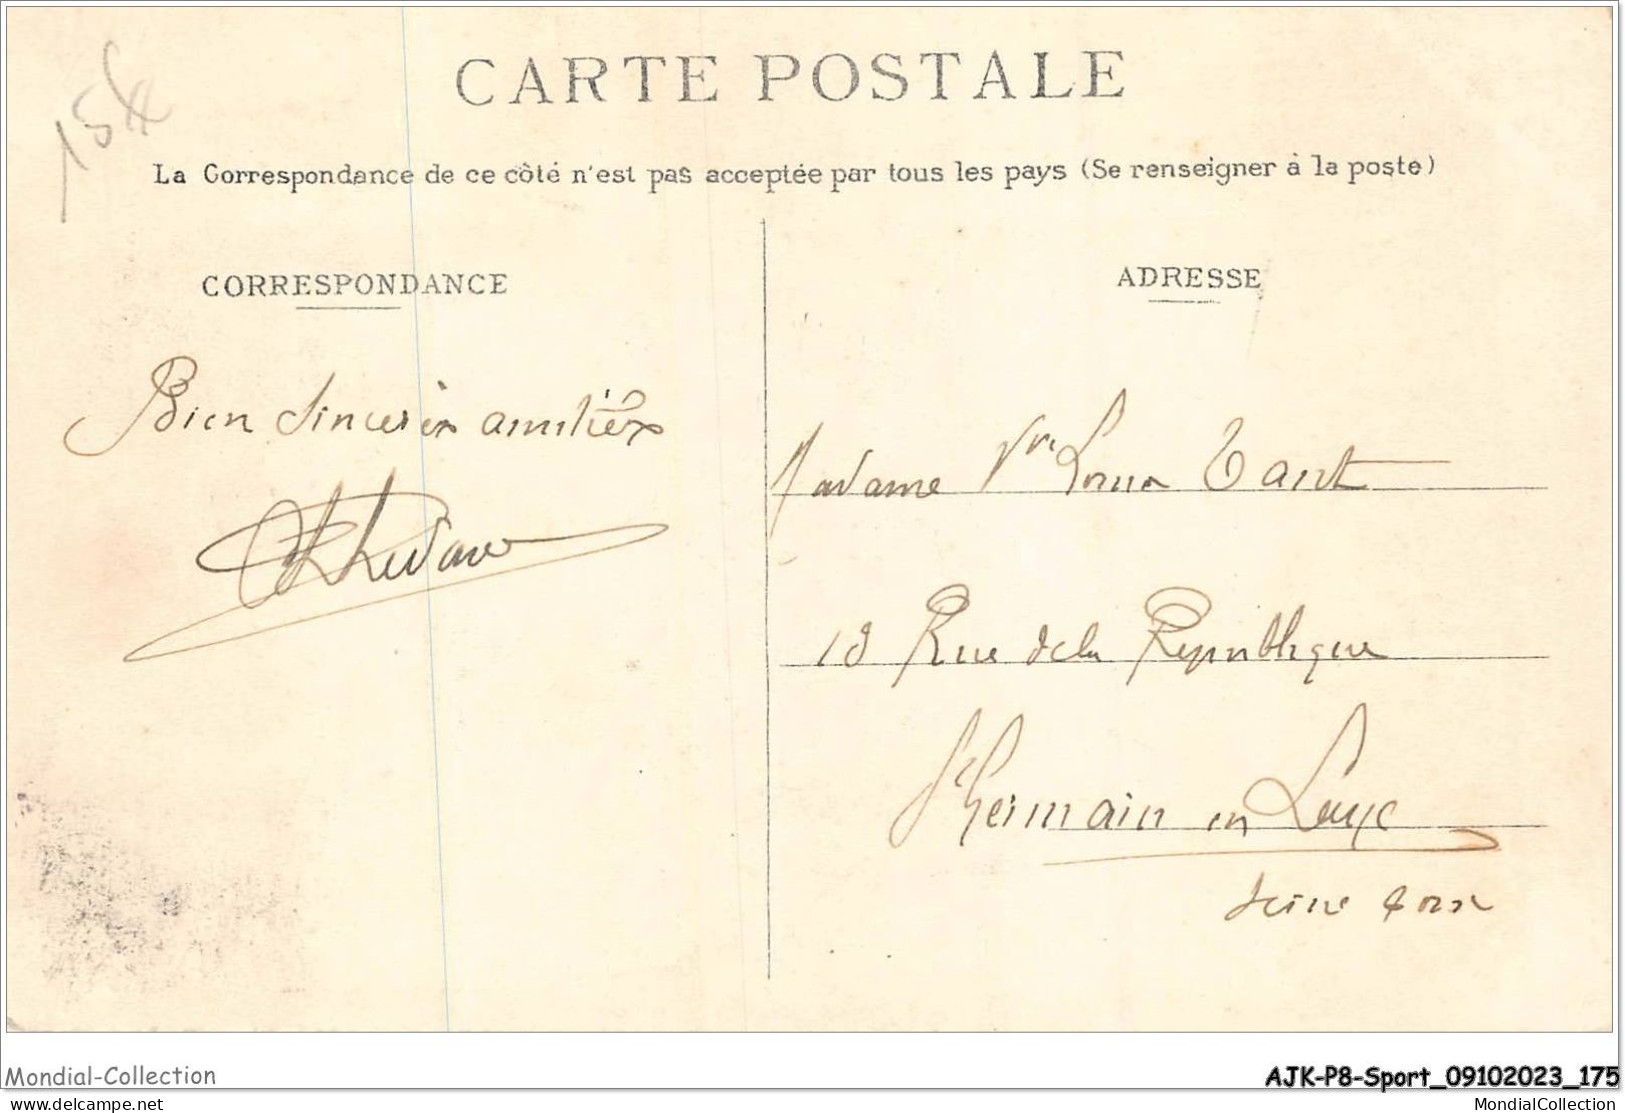 CARTE POSTALE
La Correspondance de ce côté n'est pas acceptée par tous les pays (Se renseigner à la poste)
CORRESPONDANCE
ADRESSE
Bien sincères amitiés
Madame Vve
18 Rue de la République
St Germain en Laye
Seine & Oise
Mondial-Collection
AJK-P8-Sport_09102023_175
delcampe.net
MondialCollection